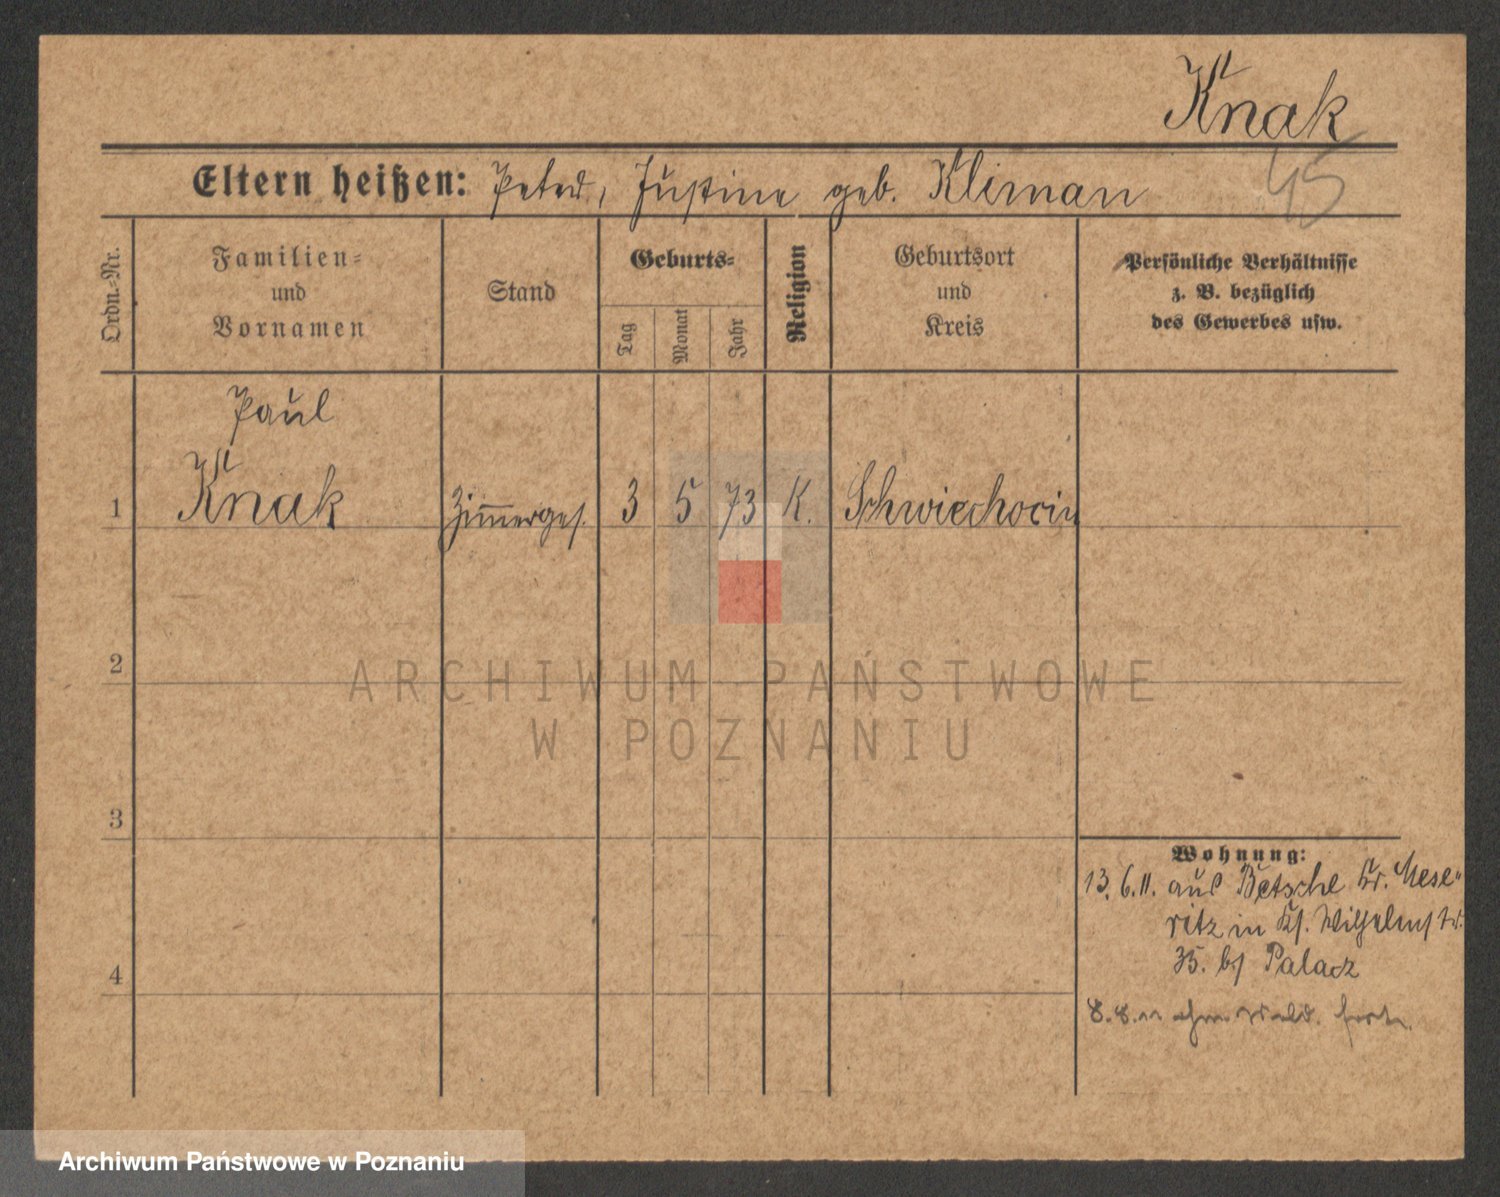 Knak
45
Eltern heißen: Peter, Justine geb. Kliman
Ordn.=Nr.
Familien=
und
Vornamen
Stand
Geburts=
Tag
Monat
Jahr
Religion
Geburtsort
und
Kreis
Persönliche Verhältnisse
z. B. bezüglich
des Gewerbes usw.
Paul
1 Knak Zim̅erges. 3 5 73 K. Schwiechocin
2
ARCHIWUM PAŃSTWOWE
W POZNANIU
3
Wohnung:
13.6.11. aus Betsche Kr. Mese-
ritz in Ks. Wilhelmstr.
35. bei Palacz
4
8.8.11
Archiwum Państwowe w Poznaniu